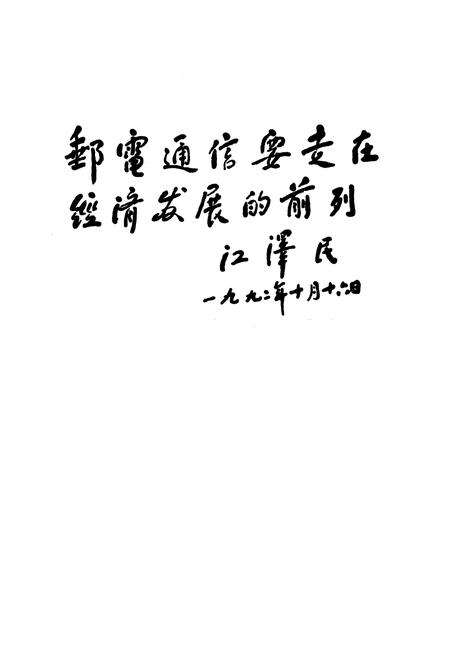 郵電通信要走在
經濟发展的前列
江澤民
一九九二年十月十六日